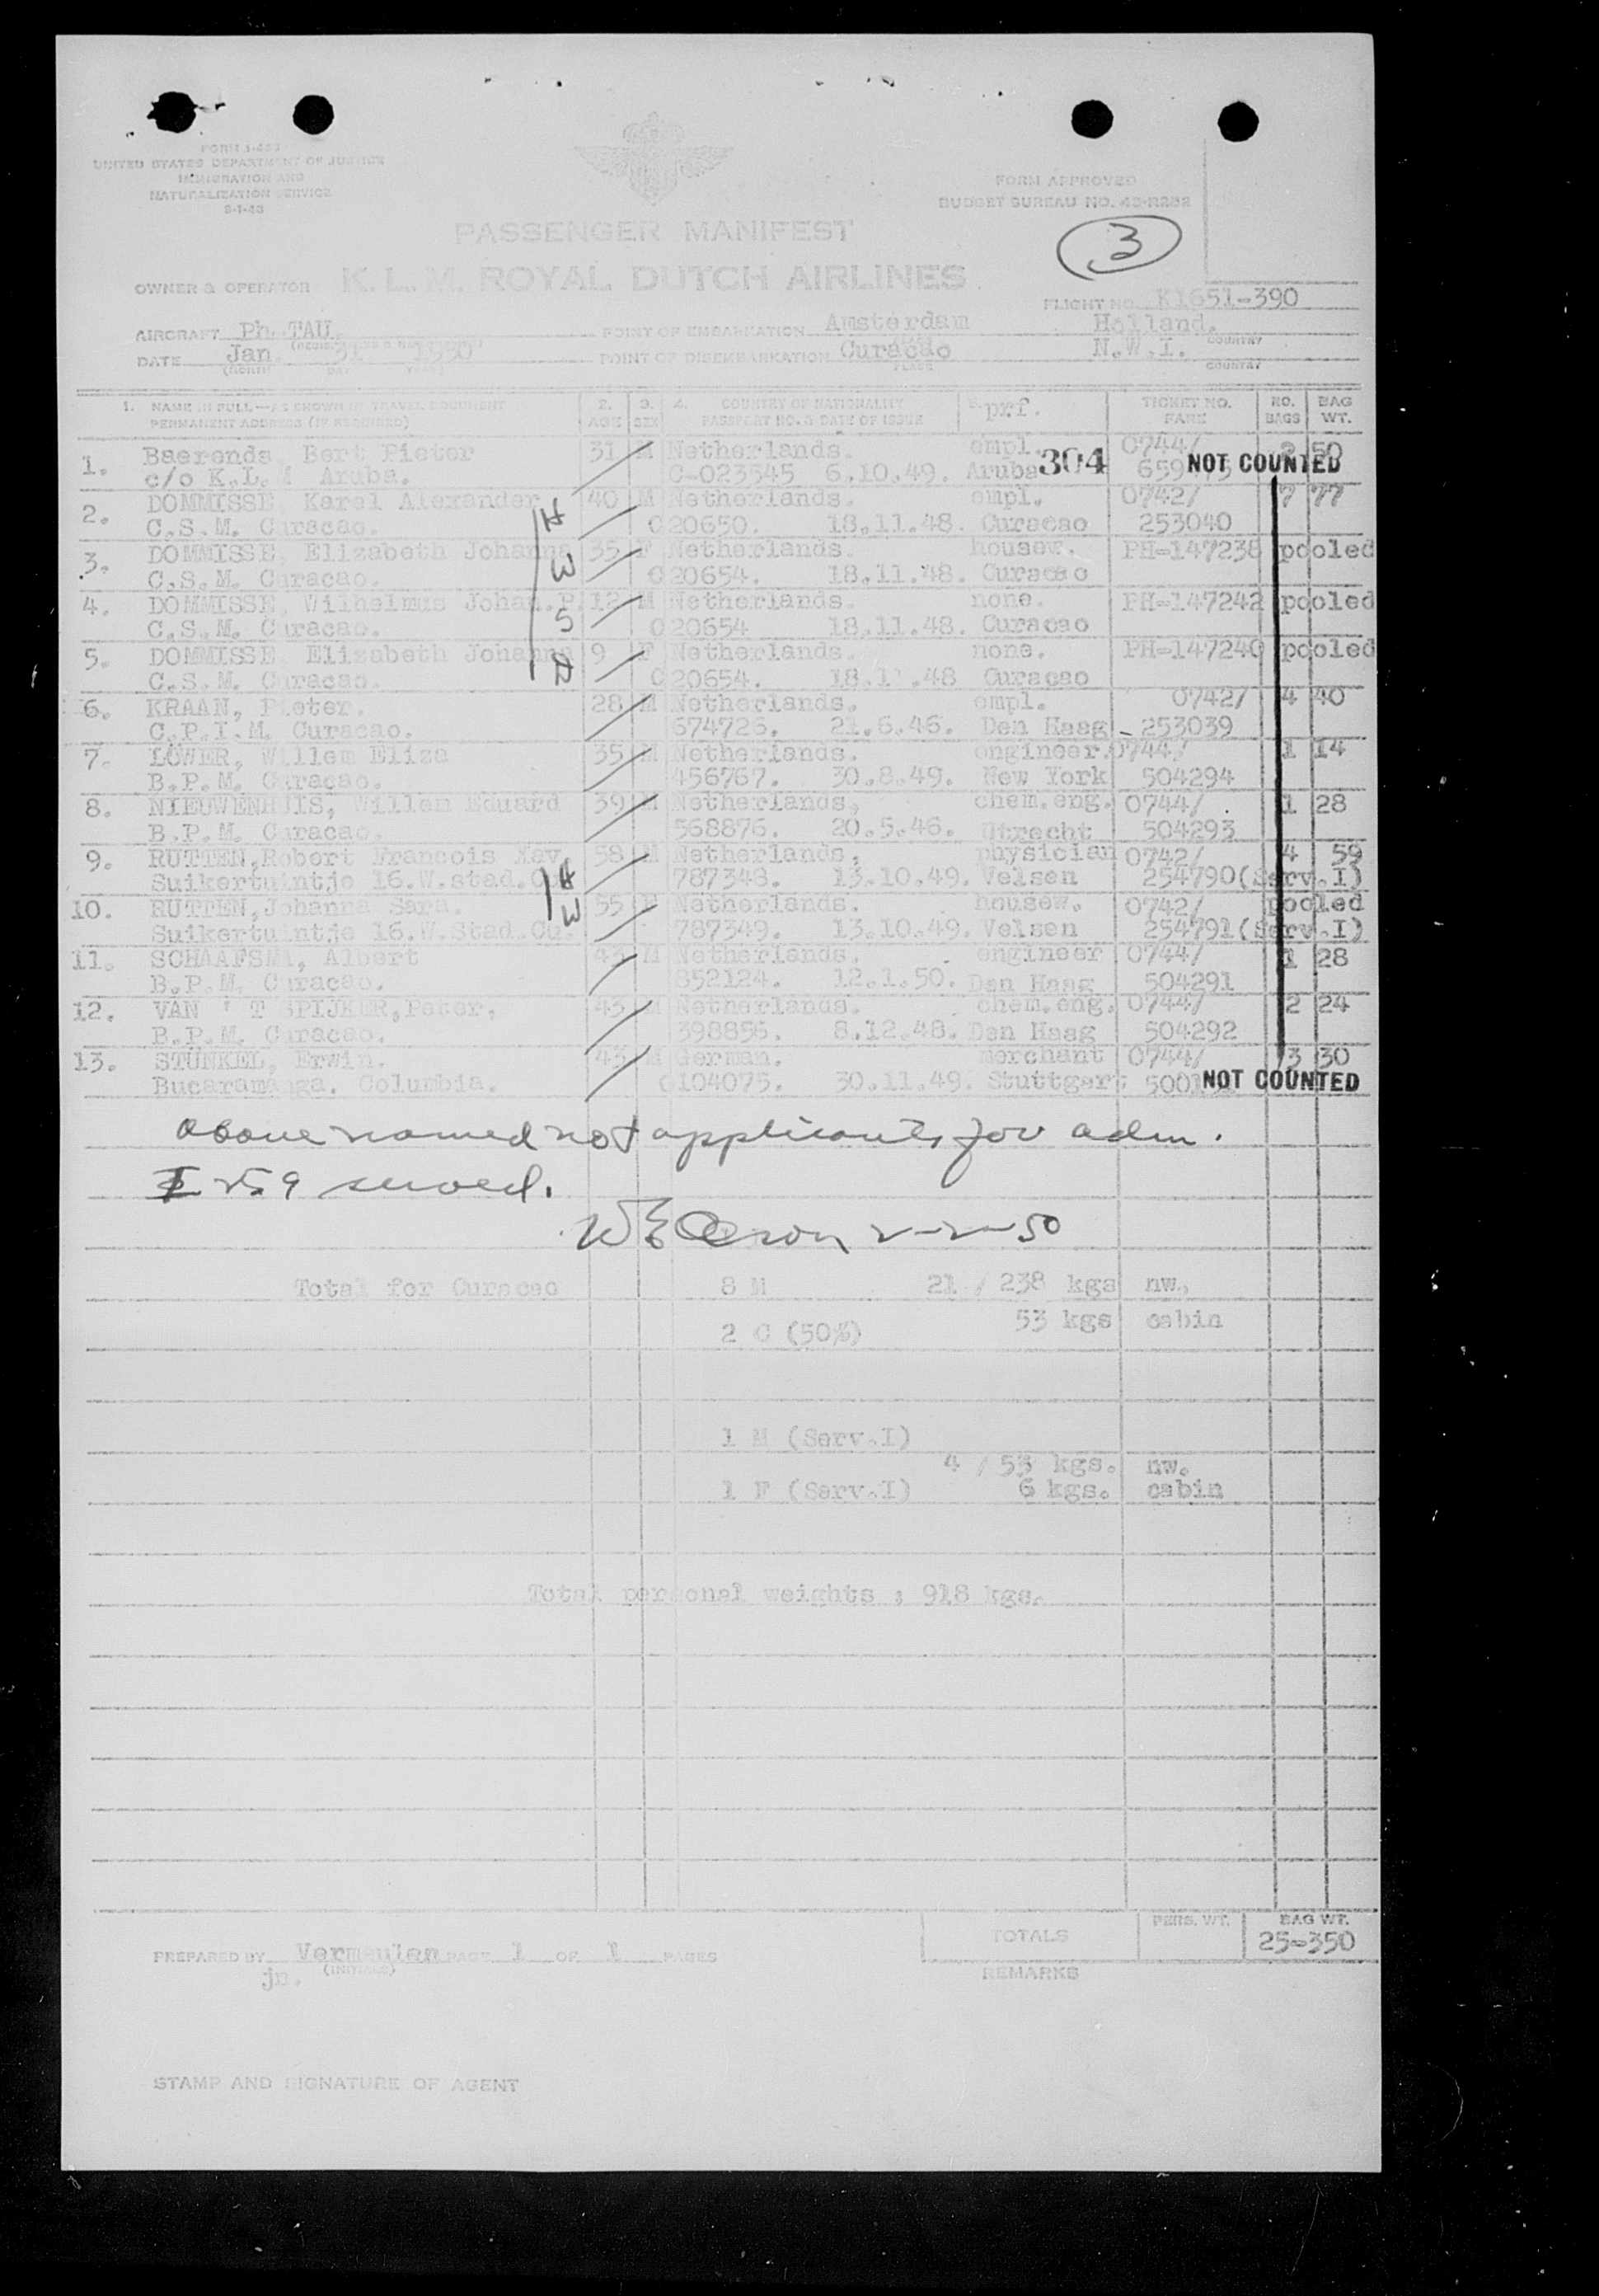 FORM I-483
UNITED STATES DEPARTMENT OF JUSTICE
IMMIGRATION AND
NATURALIZATION SERVICE
FORM APPROVED
BUDGET BUREAU NO. 43-R282
3
PASSENGER MANIFEST
OWNER & OPERATOR K.L.M. ROYAL DUTCH AIRLINES
FLIGHT NO. K1651-390
AIRCRAFT Ph. TAU. POINT OF EMBARKATION Amsterdam Holland.
DATE Jan. 31 1950 POINT OF DISEMBARKATION Curacao N.W.I.
(MONTH DAY YEAR) PLACE COUNTRY
1. NAME IN FULL—AS SHOWN IN TRAVEL DOCUMENT 2. 3. 4. COUNTRY OF NATIONALITY prf. TICKET NO. NO. BAG
PERMANENT ADDRESS (IF REQUIRED) AGE SEX PASSPORT NO. & DATE OF ISSUE FARE BAGS WT.
1. Baerends, Bert Pieter 31 M Netherlands. empl. 0744/ 2 50
c/o K.L.M Aruba. C-023545 6.10.49. Aruba 304 NOT COUNTED
2. DOMMISSE Karel Alexander 40 M Netherlands. empl. 0742/ 7 77
C.S.M. Curacao. C 20650. 18.11.48. Curacao 253040
3. DOMMISSE, Elizabeth Johanna 35 F Netherlands. housew. PH-147238 pooled
C.S.M. Curacao. C 20654. 18.11.48. Curacao
4. DOMMISSE, Wilhelmus Johan.P. 12 M Netherlands. none. PH-147242 pooled
C.S.M. Curacao. C 20654 18.11.48. Curacao
5. DOMMISSE Elizabeth Johanna 9 F Netherlands. none. PH-147240 pooled
C.S.M. Curacao. C 20654. 18.11.48 Curacao
H
W
S
D
6. KRAAN, Pieter. 28 M Netherlands. empl. 0742/ 4 40
C.P.I.M. Curacao. 674726. 21.6.46. Den Haag - 253039
7. LÖWER, Willem Eliza 35 M Netherlands. engineer. 0744/ 1 14
B.P.M. Curacao. 456767. 30.8.49. New York 504294
8. NIEUWENHUIS, Willem Eduard 39 M Netherlands, chem.eng. 0744/ 1 28
B.P.M. Curacao. 568876. 20.5.46. Utrecht 504293
9. RUTTEN,Robert Francois Xav. 58 M Netherlands, physician 0742/ 4 59
Suikertuintje 16.W.stad.Cu. 787348. 13.10.49. Velsen 254790(Serv.I)
10. RUTTEN,Johanna Sara. 55 F Netherlands. housew. 0742/ pooled
Suikertuintje 16.W.Stad.Cu. 787349. 13.10.49. Velsen 254791(Serv.I)
H
W
11. SCHAAFSMA, Albert M Netherlands. engineer 0744/ 1 28
B.P.M. Curacao. 852124. 12.1.50. Den Haag 504291
12. VAN 'T SPIJKER,Peter. 43 M Netherlands. chem.eng. 0744/ 2 24
B.P.M. Curacao. 398856. 8.12.48. Den Haag 504292
13. STÜNKEL, Erwin. 43 M German. merchant 0744/ 3 30
Bucaramanga. Columbia. C 104075. 30.11.49. Stuttgart NOT COUNTED
Above named not applicants for adm.
I 259 served.
2-2-50
Total for Curacao 8 M 21 / 238 kgs nw.
53 kgs cabin
2 C (50%)
1 M (Serv.I)
4 / 53 kgs. nw.
1 F (Serv.I) 6 kgs. cabin
Total personal weights : 918 kgs.
TOTALS PERS. WT. BAG WT.
25-350
PREPARED BY Vermeulen PAGE 1 OF 1 PAGES
jn. (INITIALS)
REMARKS
STAMP AND SIGNATURE OF AGENT